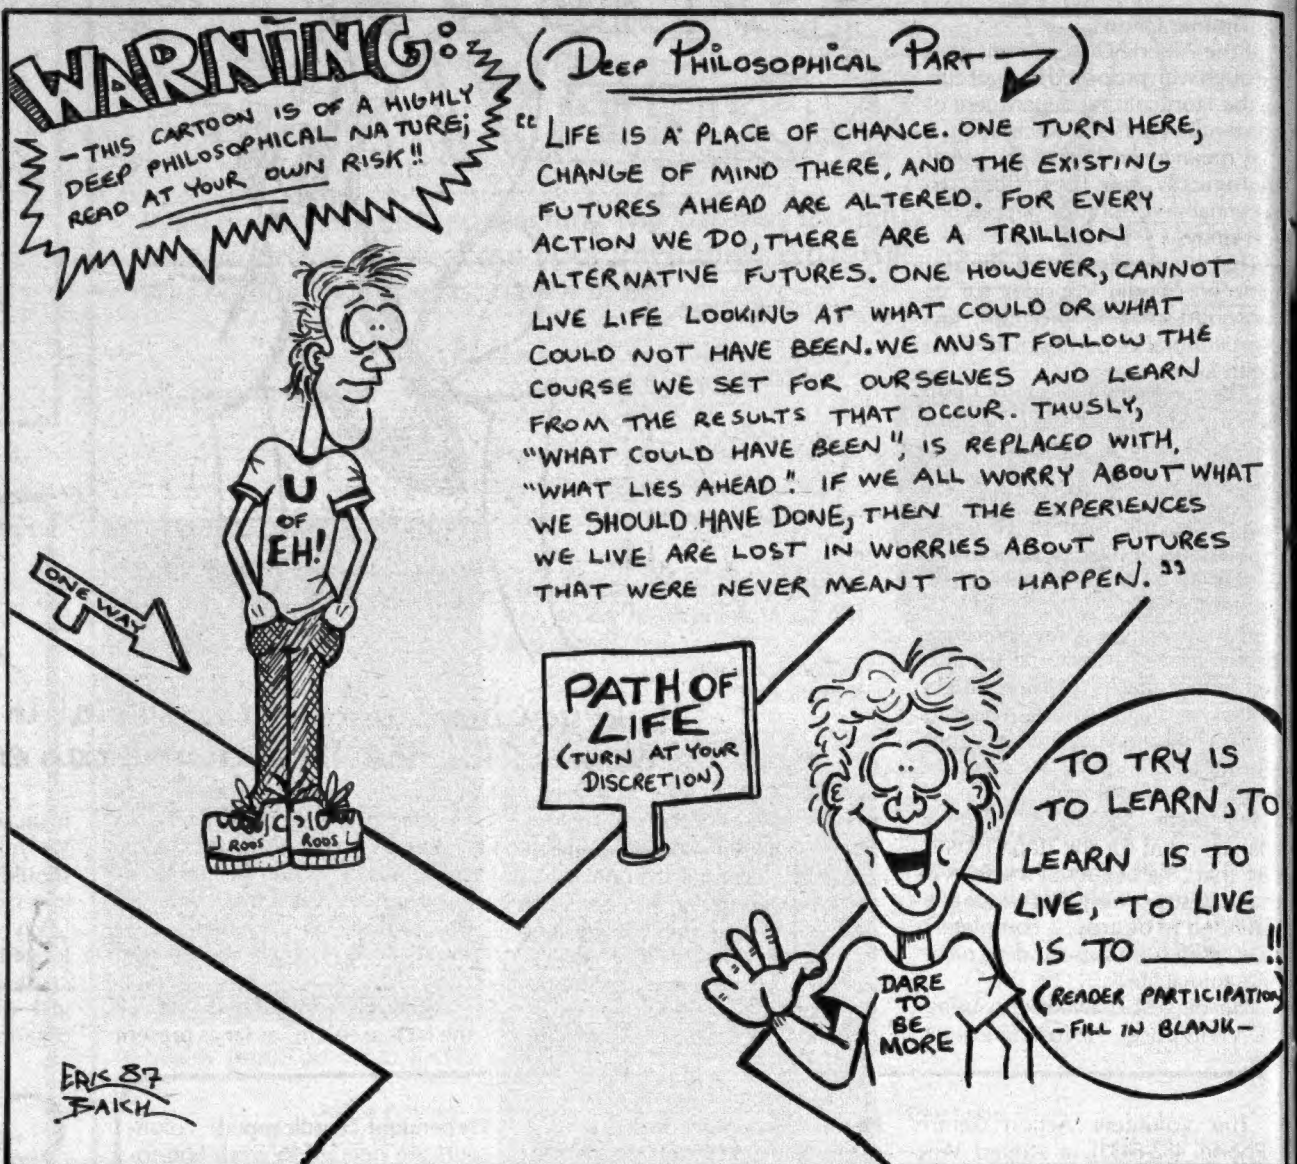 WARNING:
- THIS CARTOON IS OF A HIGHLY
DEEP PHILOSOPHICAL NATURE;
READ AT YOUR OWN RISK!!
(DEEP PHILOSOPHICAL PART )
"LIFE IS A PLACE OF CHANCE. ONE TURN HERE,
CHANGE OF MIND THERE, AND THE EXISTING
FUTURES AHEAD ARE ALTERED. FOR EVERY
ACTION WE DO, THERE ARE A TRILLION
ALTERNATIVE FUTURES. ONE HOWEVER, CANNOT
LIVE LIFE LOOKING AT WHAT COULD OR WHAT
COULD NOT HAVE BEEN. WE MUST FOLLOW THE
COURSE WE SET FOR OURSELVES AND LEARN
FROM THE RESULTS THAT OCCUR. THUSLY,
"WHAT COULD HAVE BEEN", IS REPLACED WITH,
"WHAT LIES AHEAD". IF WE ALL WORRY ABOUT WHAT
WE SHOULD HAVE DONE, THEN THE EXPERIENCES
WE LIVE ARE LOST IN WORRIES ABOUT FUTURES
THAT WERE NEVER MEANT TO HAPPEN."
U
OF
EH!
ONE WAY
ROOS ROOS
PATH OF
LIFE
(TURN AT YOUR
DISCRETION)
TO TRY IS
TO LEARN, TO
LEARN IS TO
LIVE, TO LIVE
IS TO ______!!
(READER PARTICIPATION)
- FILL IN BLANK -
DARE
TO
BE
MORE
ERIK 87